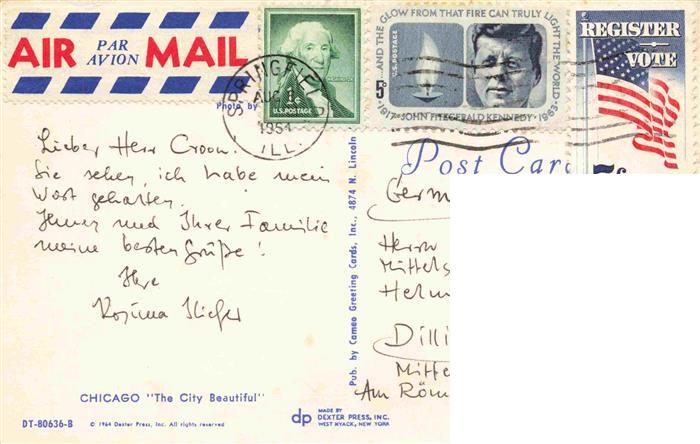 AIR PAR AVION MAIL
1¢ U.S. POSTAGE
...AND THE GLOW FROM THAT FIRE CAN TRULY LIGHT THE WORLD
U.S. POSTAGE
5¢
1917·JOHN FITZGERALD KENNEDY·1963
REGISTER
VOTE
SPRINGFIELD
AUG
1964
ILL.
Photo by
Lieber Herr Croon!
Sie sehen, ich habe mein
Wort gehalten.
Ihnen und Ihrer Familie
meine besten Grüße!
Ihre
Rosina
CHICAGO "The City Beautiful"
DT-80636-B
© 1964 Dexter Press, Inc. All rights reserved
Pub. by Cameo Greeting Cards, Inc., 4874 N. Lincoln
dp MADE BY
DEXTER PRESS, INC.
WEST NYACK, NEW YORK
Post Car
Germ
Herrn
Mittels
Helm
Dilli
Mitte
Am Röm